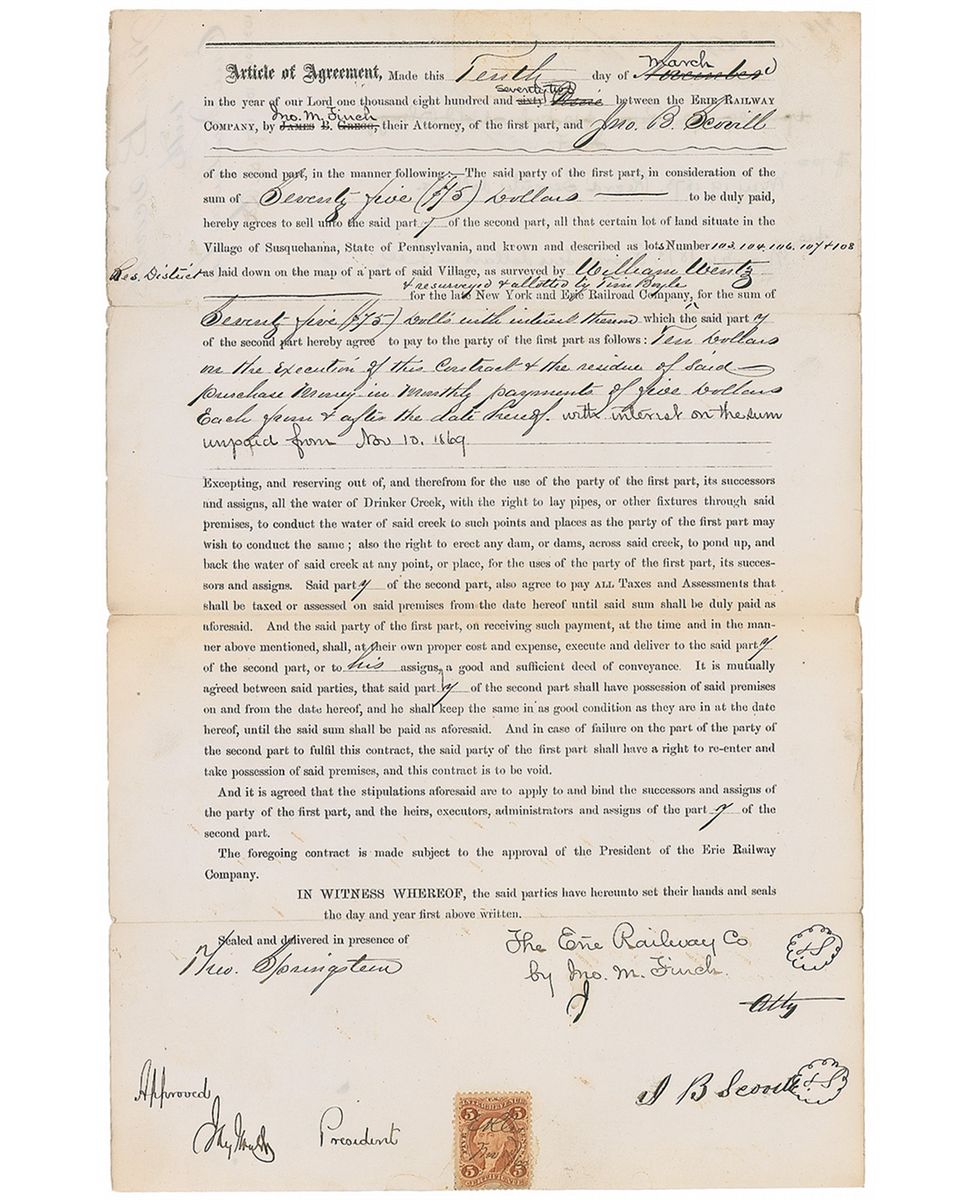 Article of Agreement, Made this Tenth day of November March
in the year of our Lord one thousand eight hundred and sixty Nine seventy two between the ERIE RAILWAY
COMPANY, by JAMES B. GREGG, Jno. M. Finch their Attorney, of the first part, and Jno. B. Scovill
of the second part, in the manner following:—The said party of the first part, in consideration of the
sum of Seventy five ($75) Dollars to be duly paid,
hereby agrees to sell unto the said party of the second part, all that certain lot of land situate in the
Village of Susquehanna, State of Pennsylvania, and known and described as lots Number 103. 104. 106. 107 & 108
Res. District as laid down on the map of a part of said Village, as surveyed by William Wentz
& resurveyed & allotted by Tim Boyle
for the late New York and Erie Railroad Company, for the sum of
Seventy five ($75) Dolls with interest thereon which the said party
of the second part hereby agree to pay to the party of the first part as follows: Ten Dollars
on the Execution of this Contract & the residue of said
purchase Money in Monthly payments of five Dollars
Each from & after the date hereof. with interest on the sum
unpaid from Nov 10. 1869
Excepting, and reserving out of, and therefrom for the use of the party of the first part, its successors
and assigns, all the water of Drinker Creek, with the right to lay pipes, or other fixtures through said
premises, to conduct the water of said creek to such points and places as the party of the first part may
wish to conduct the same; also the right to erect any dam, or dams, across said creek, to pond up, and
back the water of said creek at any point, or place, for the uses of the party of the first part, its succes-
sors and assigns. Said party of the second part, also agree to pay ALL Taxes and Assessments that
shall be taxed or assessed on said premises from the date hereof until said sum shall be duly paid as
aforesaid. And the said party of the first part, on receiving such payment, at the time and in the man-
ner above mentioned, shall, at their own proper cost and expense, execute and deliver to the said party
of the second part, or to his assigns, a good and sufficient deed of conveyance. It is mutually
agreed between said parties, that said party of the second part shall have possession of said premises
on and from the date hereof, and he shall keep the same in as good condition as they are in at the date
hereof, until the said sum shall be paid as aforesaid. And in case of failure on the part of the party of
the second part to fulfil this contract, the said party of the first part shall have a right to re-enter and
take possession of said premises, and this contract is to be void.
And it is agreed that the stipulations aforesaid are to apply to and bind the successors and assigns of
the party of the first part, and the heirs, executors, administrators and assigns of the party of the
second part.
The foregoing contract is made subject to the approval of the President of the Erie Railway
Company.
IN WITNESS WHEREOF, the said parties have hereunto set their hands and seals
the day and year first above written.
Sealed and delivered in presence of
Theo. Springsteen
The Erie Railway Co
by Jno. M. Finch
LS
Atty
J B Scovill LS
Approved
President
INTER. REVENUE
5 5
5 CERTIFICATE 5